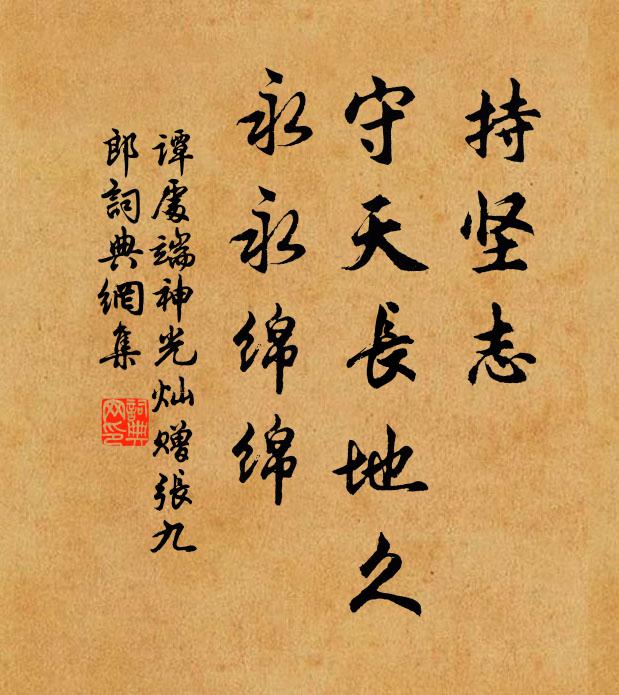 持坚志
守天長地久
永永绵绵
谭處端神光灿赠張九
郎詞典網集
詞典网印